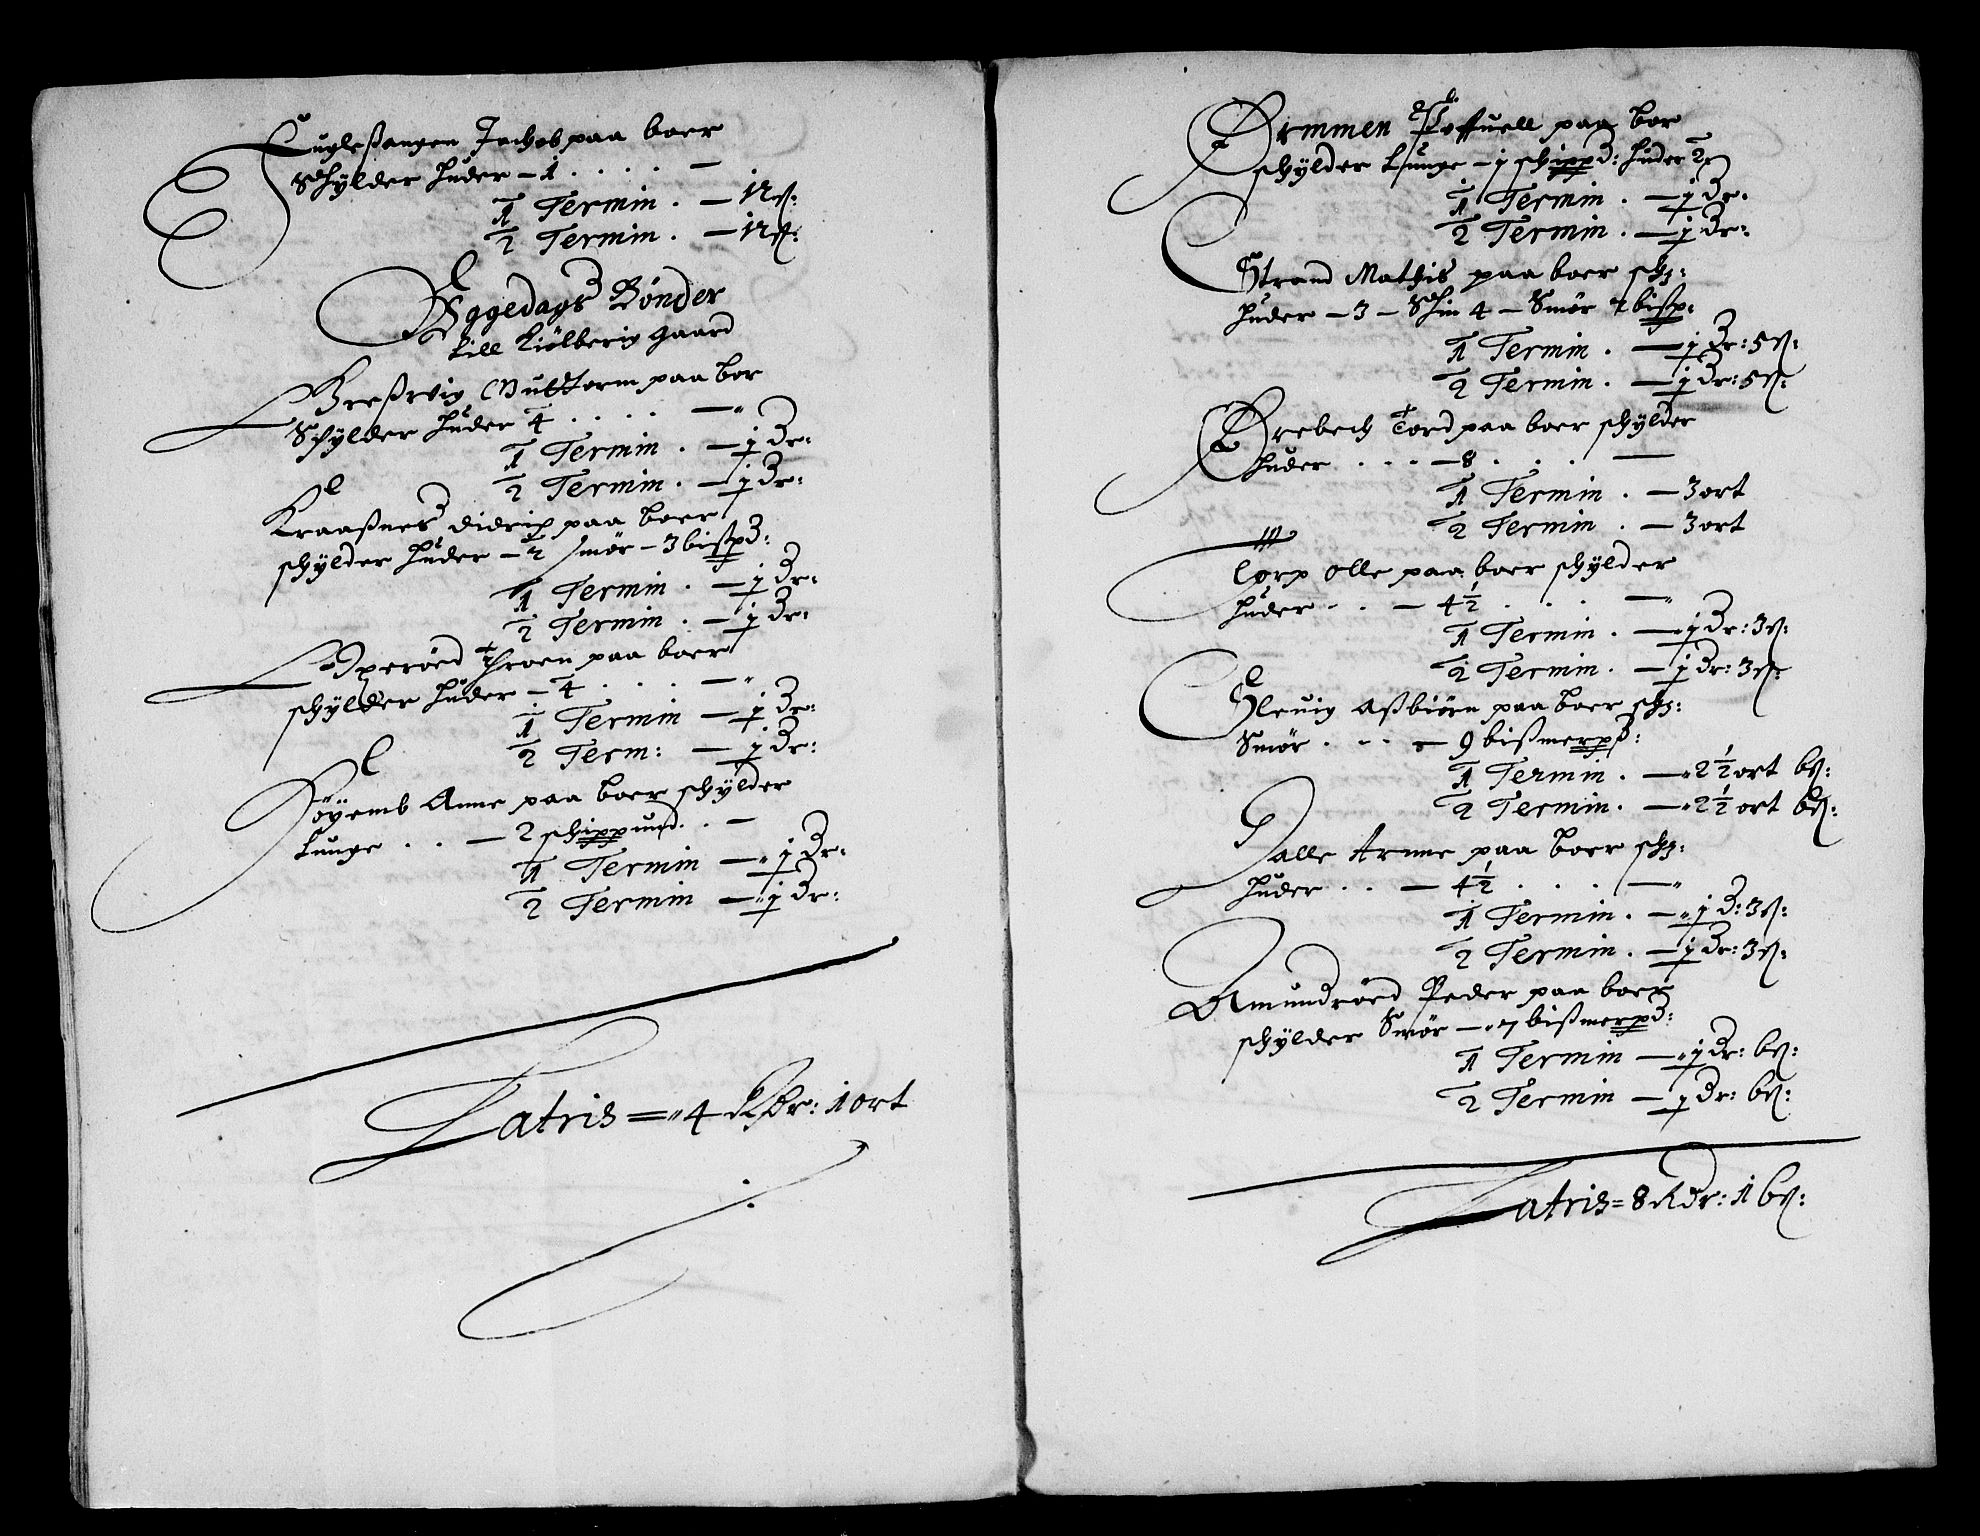 Fuglesangen Jachob paa boer
Schÿlder Huder - 1 . . . . —
1 Termin . — 12 s:
2 Termin . — 12 s:
Uggedags Bønder
till Kiølberig gaard
Gressvig Guttorm paa bor
Schÿlder Huder 4 . . . . — "
1 Termin . — j dr:
2 Termin . — j dr:
Kraaßnes Didrich paa boer
schÿlder Huder - 2 Smør - 3 bißpd:
1 Termin . — j dr:
2 Termin . — j dr:
Operøed Throen paa boer
schÿlder Huder - 4 . . . — "
1 Termin — j dr:
2 Term: — j dr:
Høÿemb Anne paa boer schÿlder
tunge . . — 2 schippund . . —
1 Termin — " j dr:
2 Termin — " j dr:
Latris = " 4 Rdr: 1 ort
Ørmmen Toffuell paa bor
schÿlder tunge - j schippd: Huder 2
1 Termin . — j dr:
2 Termin . — j dr:
Strand Mathis paa boer sch:
Huder - 3 - Schin 4 - Smør 7 bißp:
1 Termin . — j dr: 5 s:
2 Termin . — j dr: 5 s:
Ørebech Tord paa boer schÿlder
Huder . . . — 8 . . . —
1 Termin . — 3 ort
2 Termin . — 3 ort
Torp Olle paa boer schÿlder
Huder . . — 4½ . . . — "
1 Termin . — " j dr: 3 s:
2 Termin . — j dr: 3 s:
Sleuig Aßbiørn paa boer sch:
Smør . . . — 9 bißmerpd:
1 Termin . — " 2½ ort 6 s:
2 Termin . — " 2½ ort 6 s:
Dalle Arnne paa boer sch:
Huder . . — 4½ . . . — "
1 Termin . — " j d: 3 s:
2 Termin . — j dr: 3 s:
Amundrøed Peder paa boer
schÿlder Smør — " 7 bißmerpd:
1 Termin — " j dr: 6 s:
2 Termin — j dr: 6 s:
Latris = 8 Rdr: 16 s: